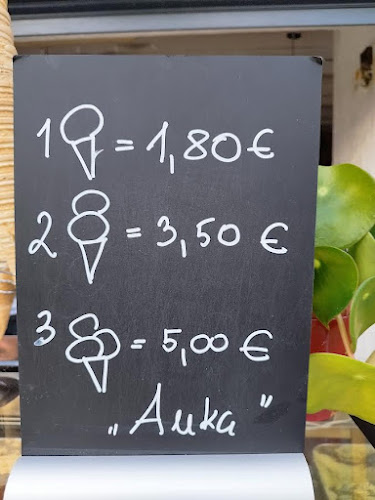 1 = 1,80 €
2 = 3,50 €
3 = 5,00 €
„Аика"